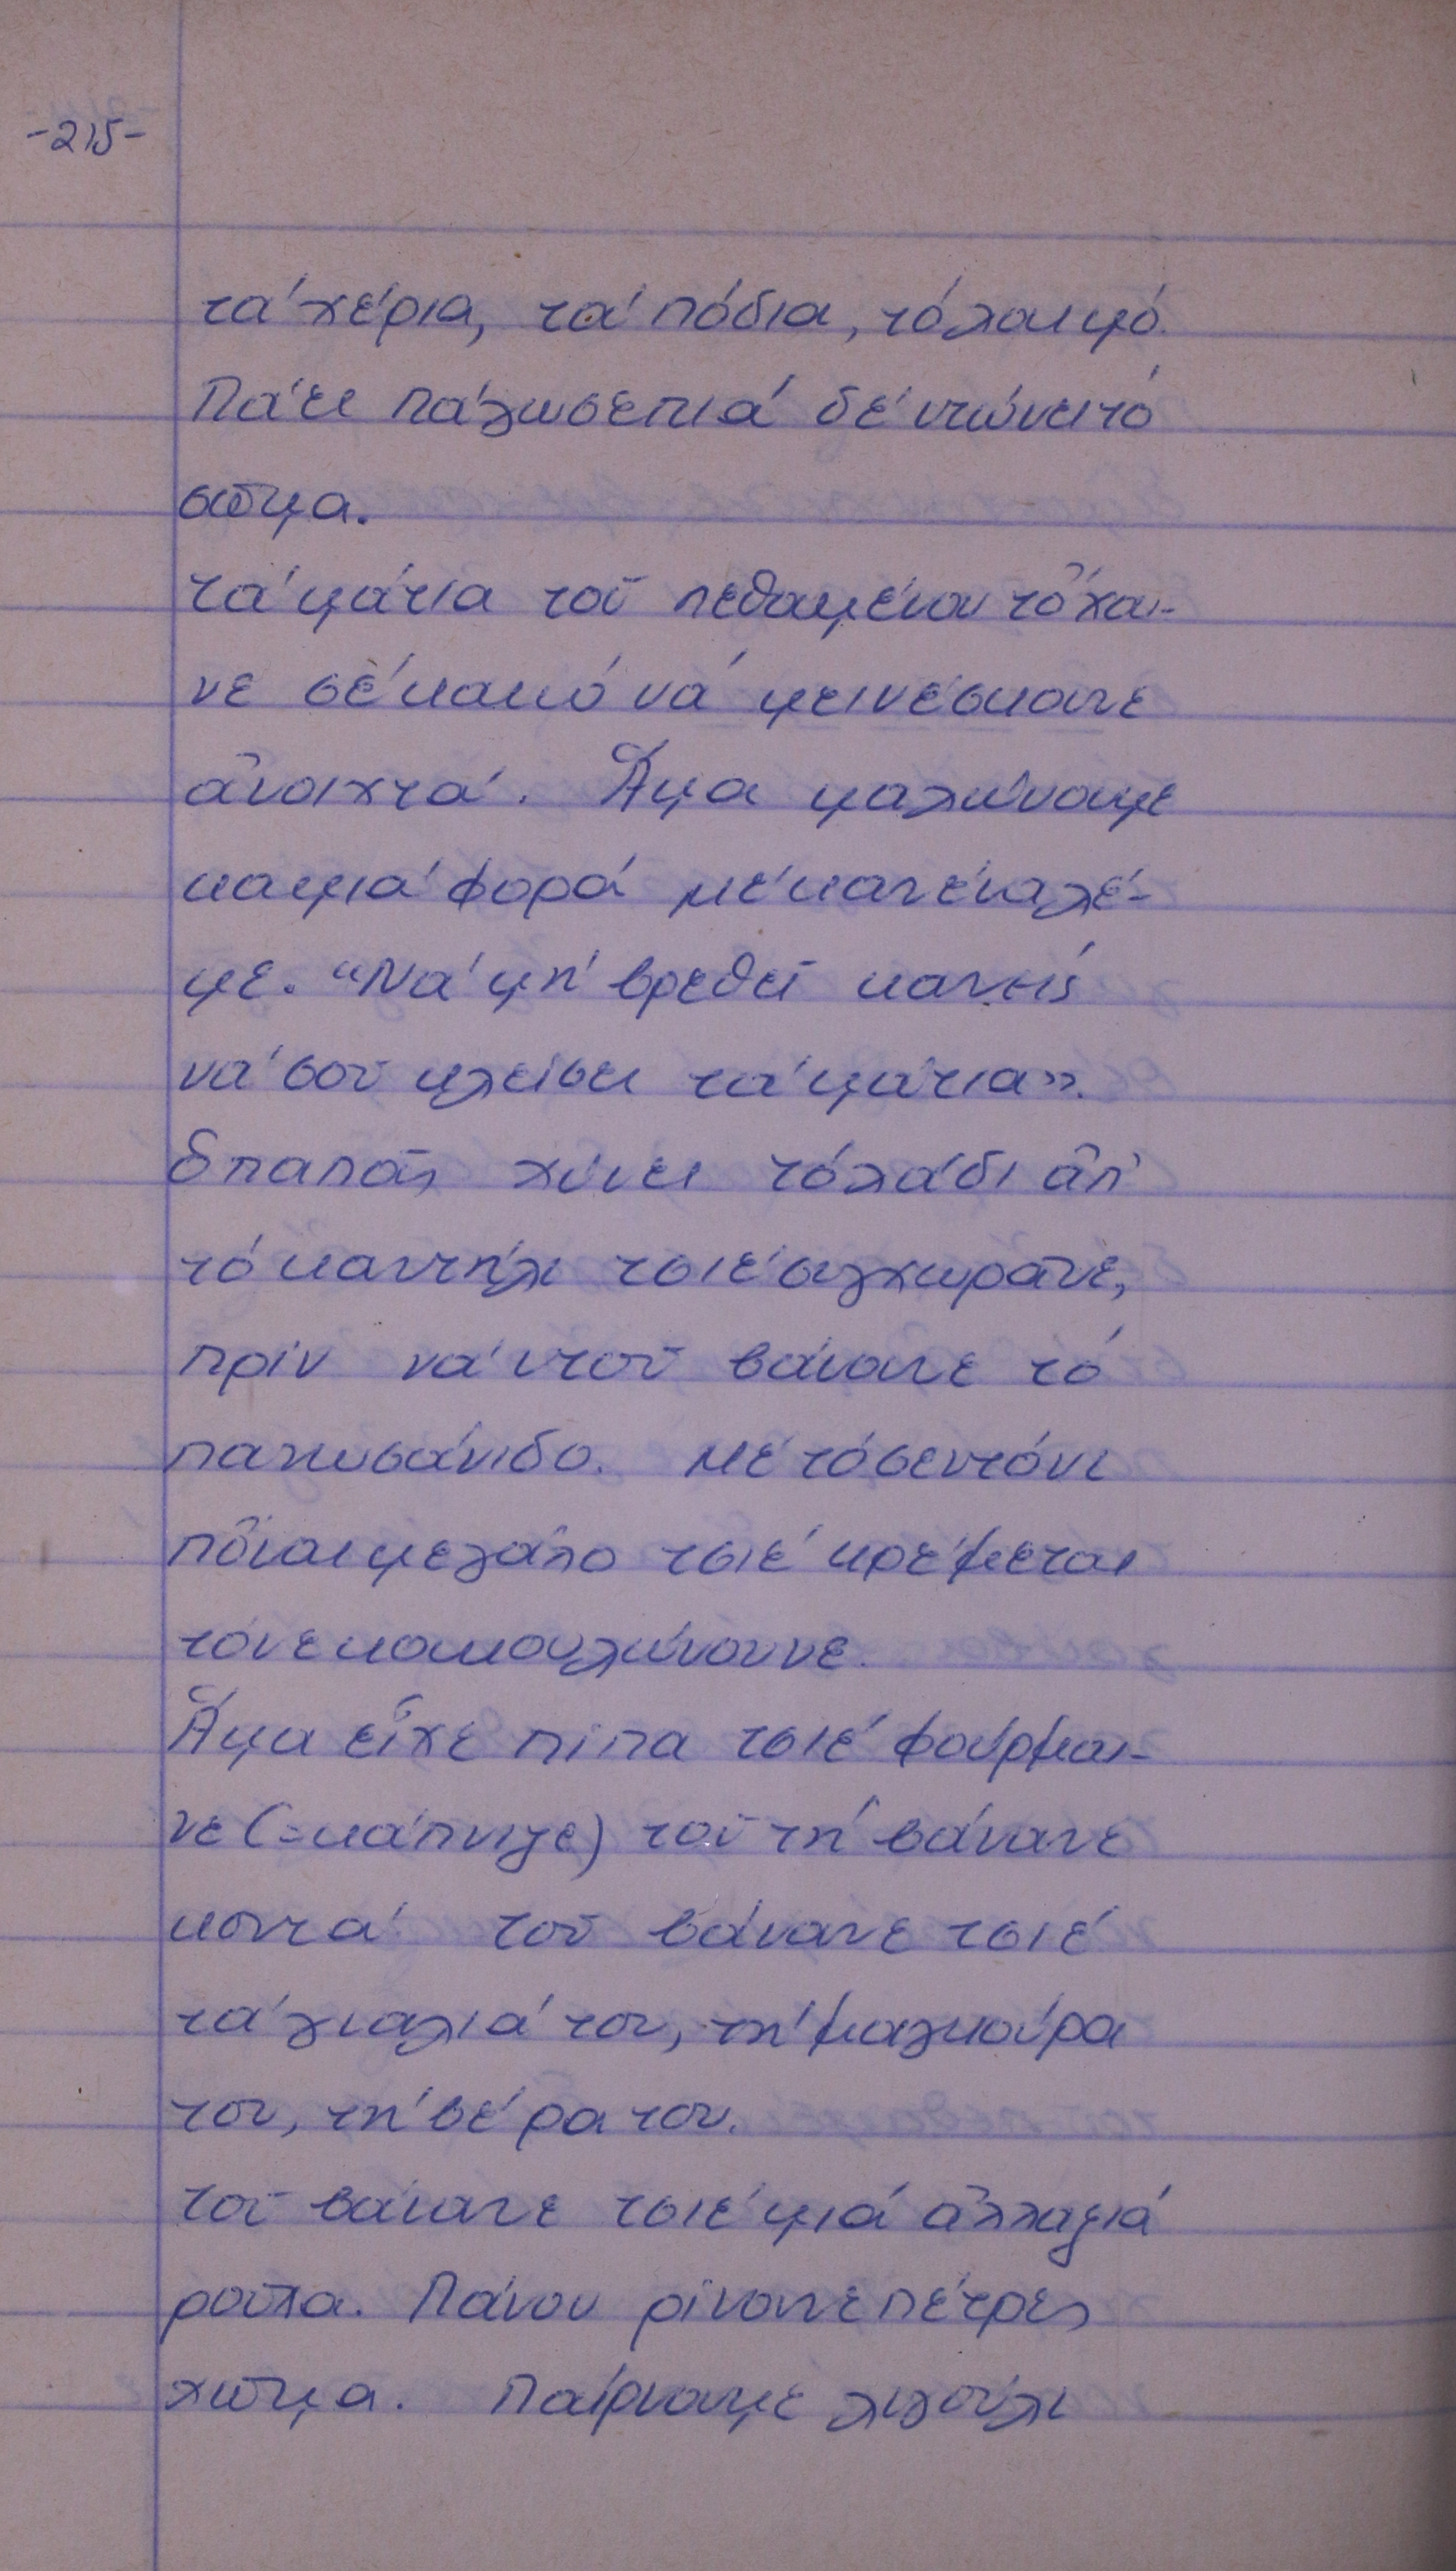 -215-
τά χέρια, τά πόδια, τό λαιμό.
Πάει πάγωσε πιά δέ ντώνει τό
σῶμα.
τά μάτια τοῦ πεθαμένου τὄχα-
νε σέ κακό νά μεινέσκανε
ἀνοιχτά. Ἅμα μαλώναμε
καμιά φορά μέ κανένα λέ-
με. "Νά μή βρεθεῖ κανείς
νά σοῦ κλείσει τά μάτια".
Ὁ παπάς χύνει τό λάδι ἀπ'
τό καντήλι τσιέ συγχωρᾶνε,
πρίν νά ντοῦ βάνανε τό
πανωσάνιδο. Μέ τό σεντόνι
πὄναι μεγάλο τσιέ κρέμεται
τόνε κουκουλώνουνε.
Ἅμα εἶχε πίπα τσιέ φούρμαι-
νε (=κάπνιζε) τοῦ τή βάνανε
κοντά τοῦ βάνανε τσιέ
τά γιαλιά του, τή μαγκούρα
του, τή βέρα του.
Τοῦ βάνανε τσιέ μιά ἀλλαγιά
ροῦχα. Πάνου ρίνανε πέτρες
χῶμα. Παίρναμε λιγούλι